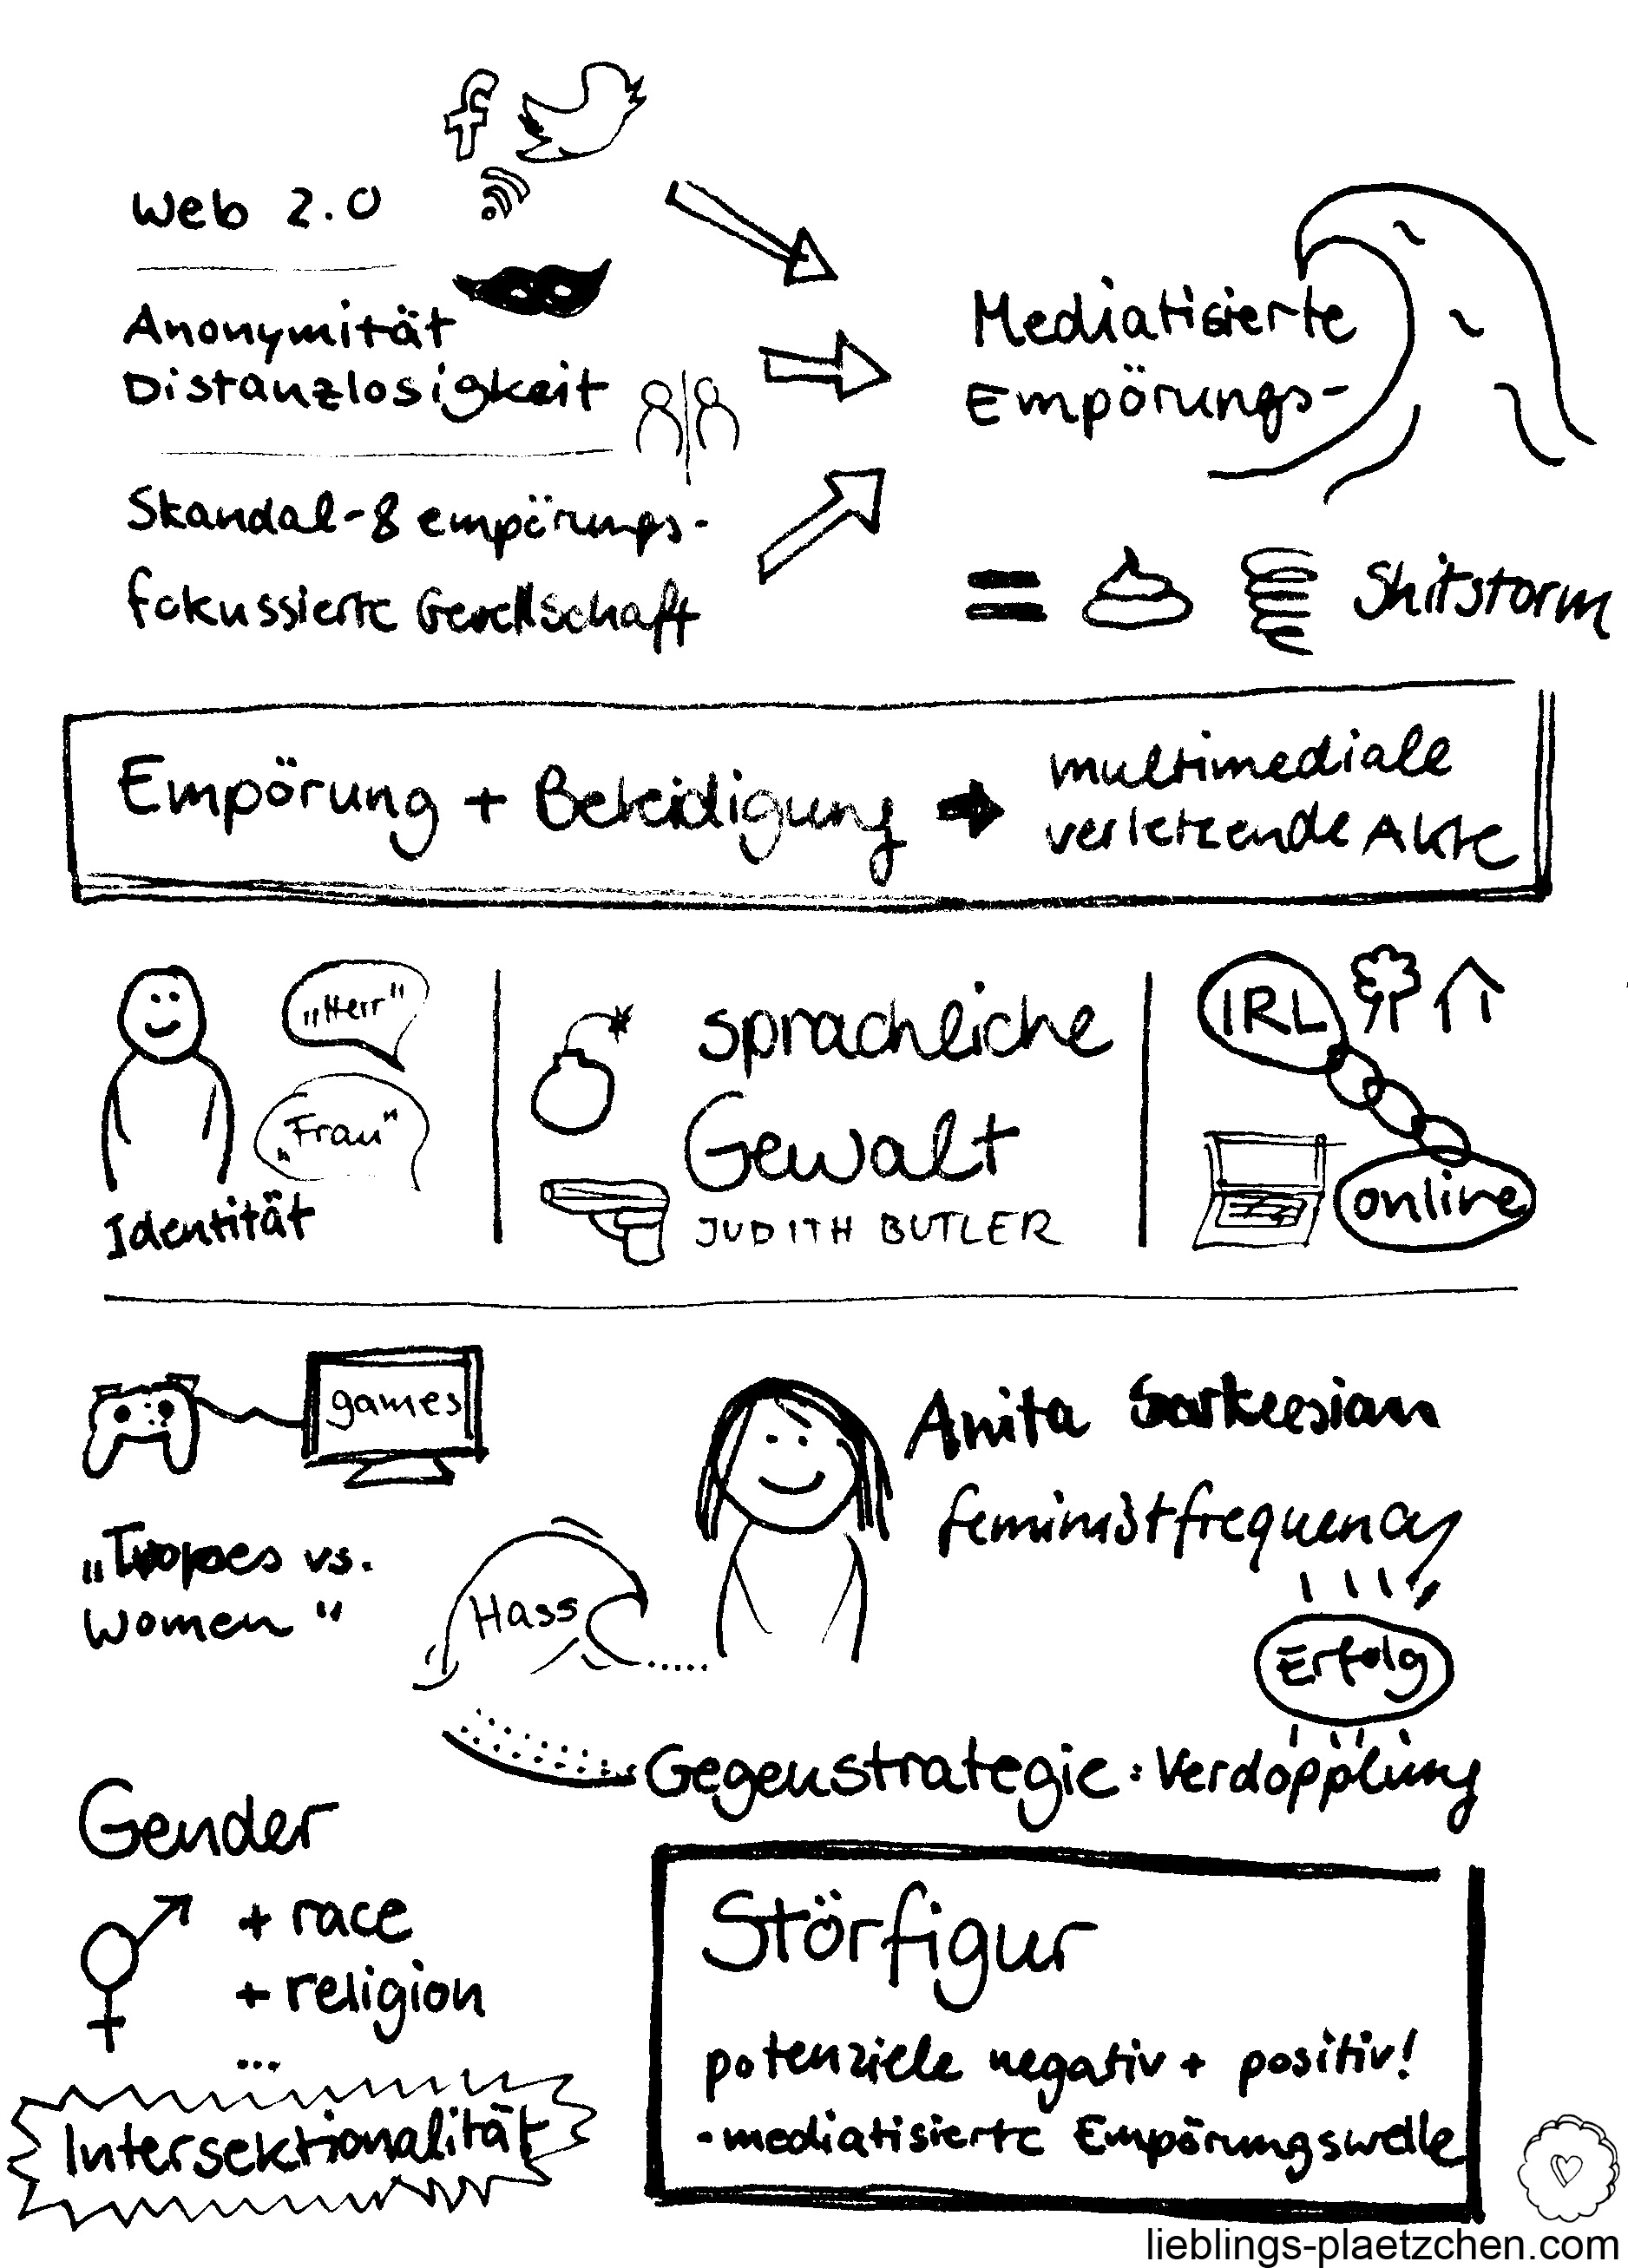 Web 2.0
Anonymität
Distanzlosigkeit
Skandal- & empörungs-
fokussierte Gesellschaft
Mediatisierte
Empörungs-
= Shitstorm
Empörung + Beleidigung
multimediale
verletzende Akte
"Herr"
„Frau"
Identität
sprachliche
Gewalt
JUDITH BUTLER
IRL
online
games
„Tropes vs.
Women"
Hass
Anita Sarkeesian
feministfrequency
Erfolg
Gegenstrategie: Verdopplung
Gender
+ race
+ religion
...
Intersektionalität
Störfigur
potenziele negativ + positiv!
- mediatisierte Empörungswelle
lieblings-plaetzchen.com